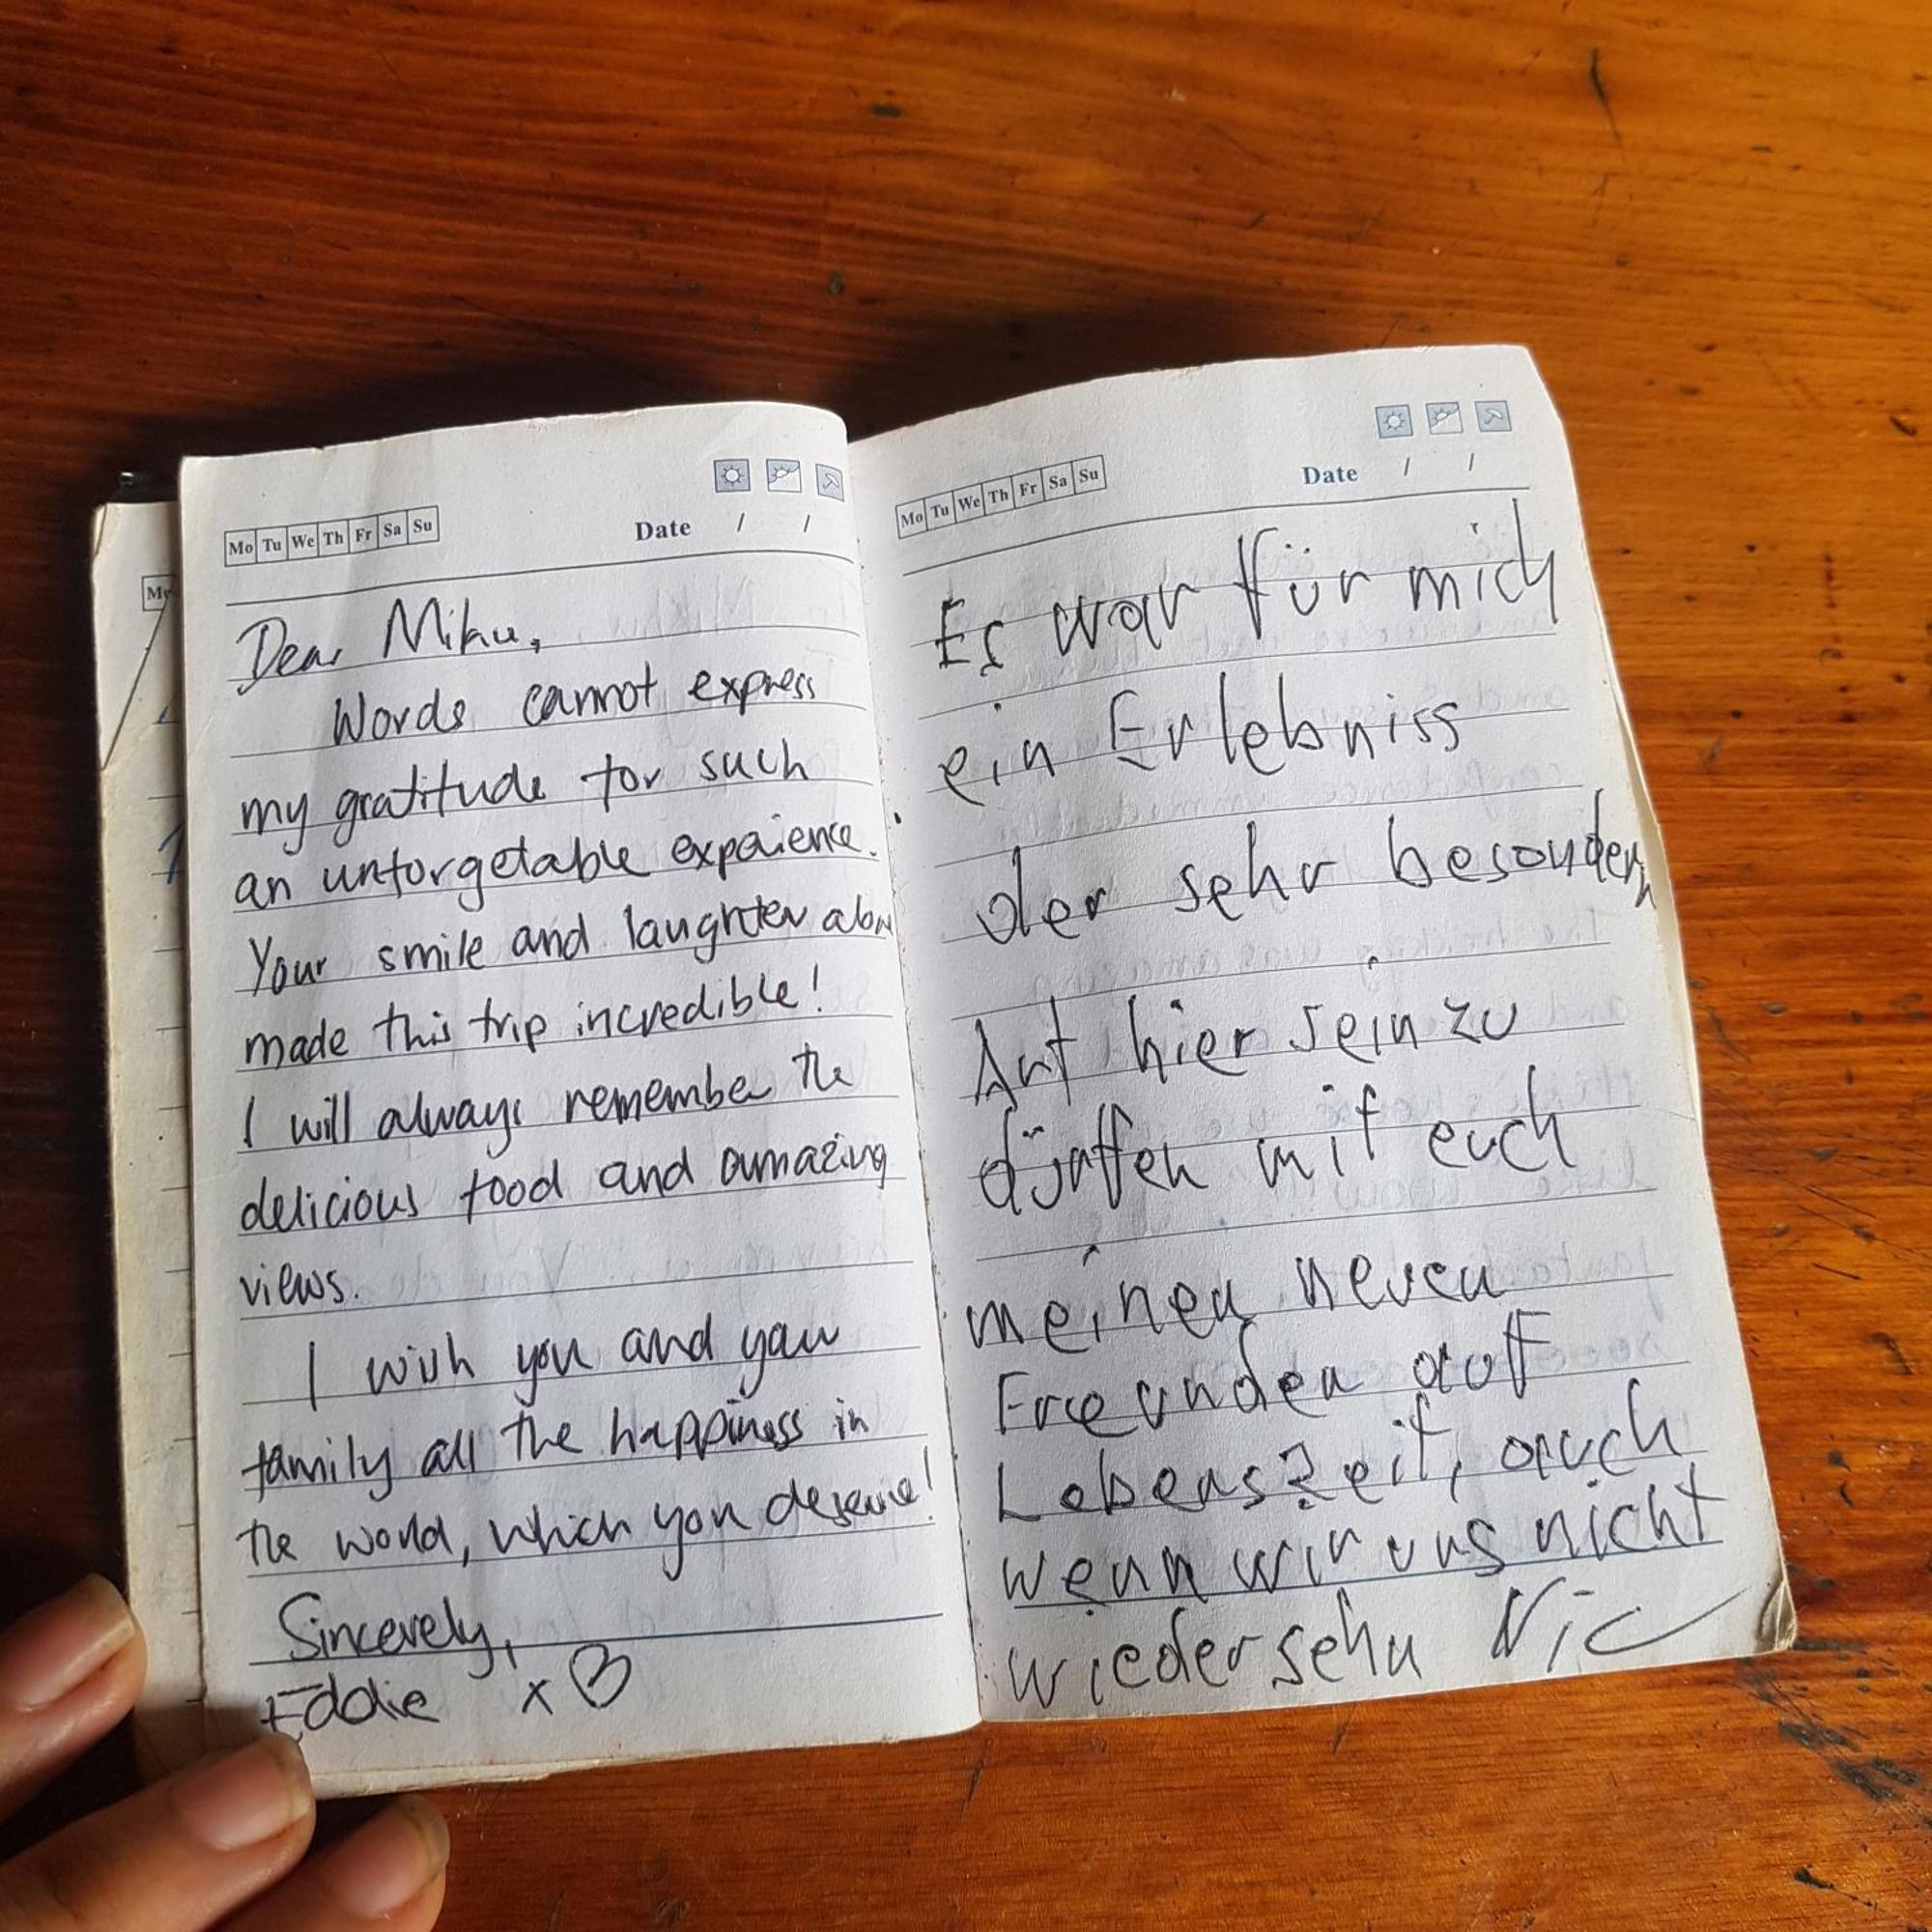 Mo Tu We Th Fr Sa Su
Date / /
Dear Mihu,
Words cannot express
my gratitude for such
an unforgetable expaience.
Your smile and laughter alone
made this trip incredible!
I will always remember the
delicious food and amazing
views.
I wish you and your
family all the happiness in
the world, which you deserve!
Sincerely,
Eddie x
Mo Tu We Th Fr Sa Su
Date / /
Es war für mich
ein Erlebniss
der sehr besondern
Art hier sein zu
dürffen mit euch
meinen neuen
Freunden auf
Lebenszeit, auch
wenn wir uns nicht
wiedersehn Nic